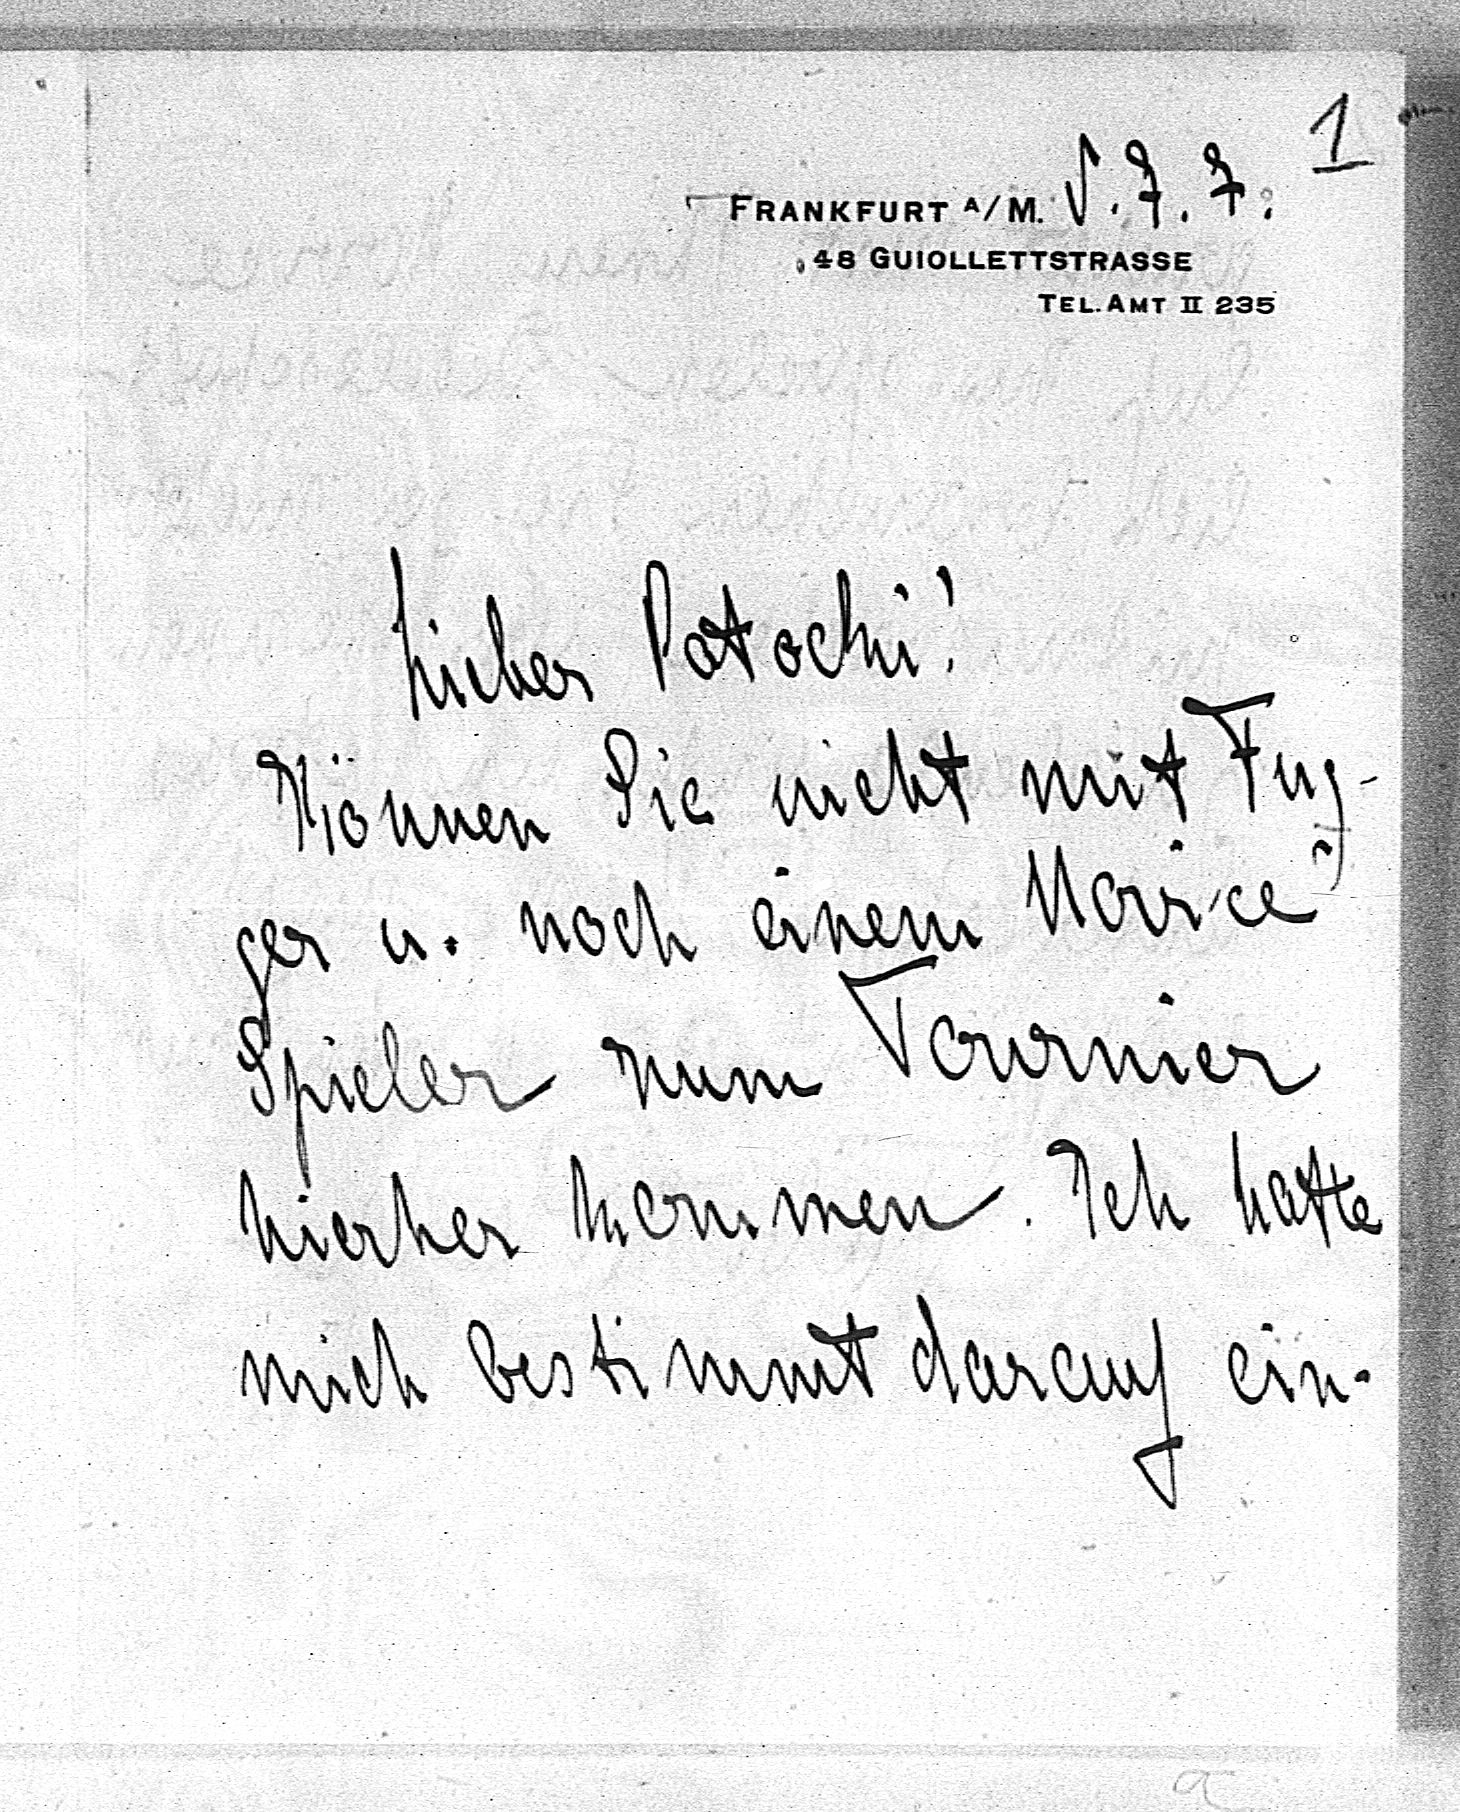 1
FRANKFURT A/M. 5.7.7.
48 GUIOLLETTSTRASSE
TEL. AMT II 235
Lieber Potocki!
Können Sie nicht mit Fug-
ger u. noch einem Novice
Spieler zum Tournier
hierher kommen. Ich hatte
mich bestimmt darauf ein-